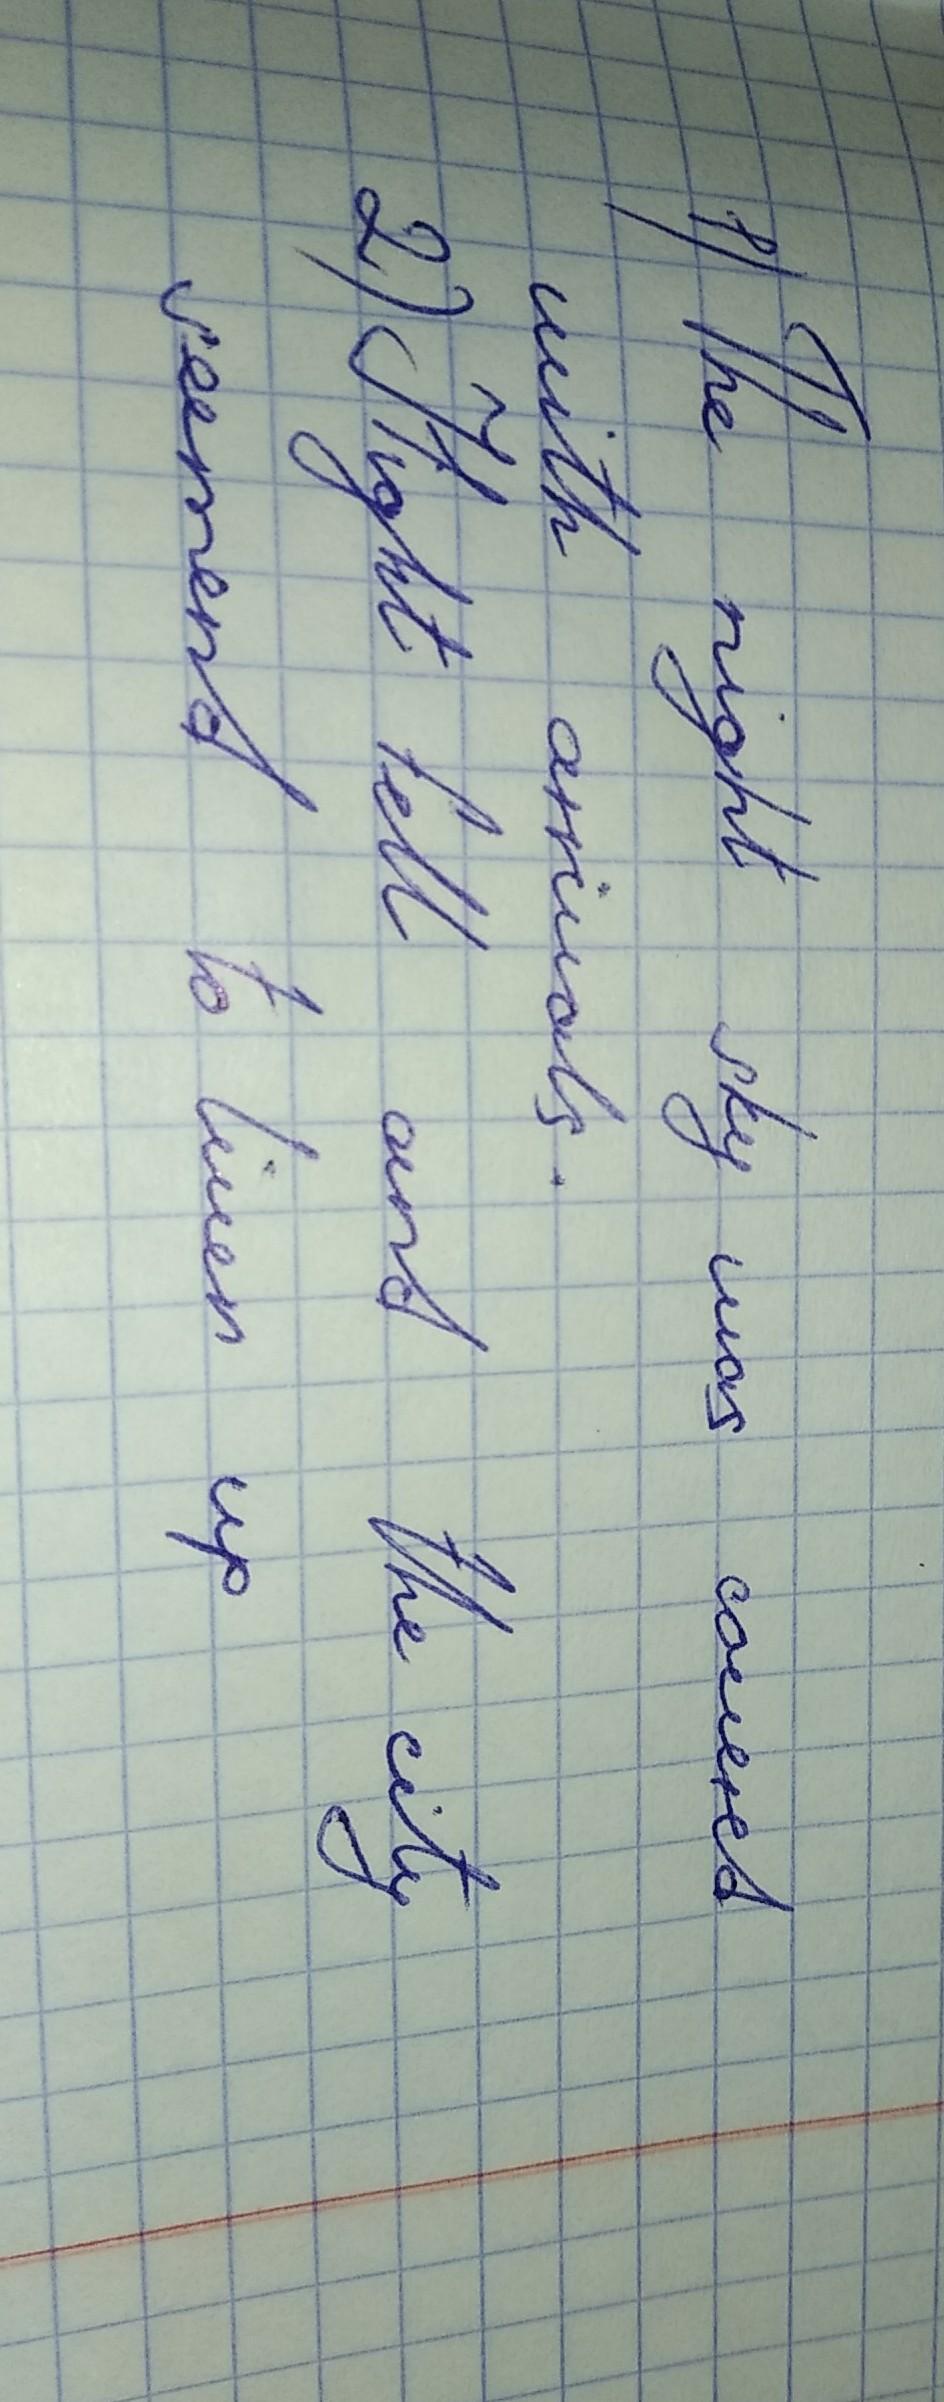 1) The night sky was covered
with arrivals.
2) Night fell and the city
seemed to liven up